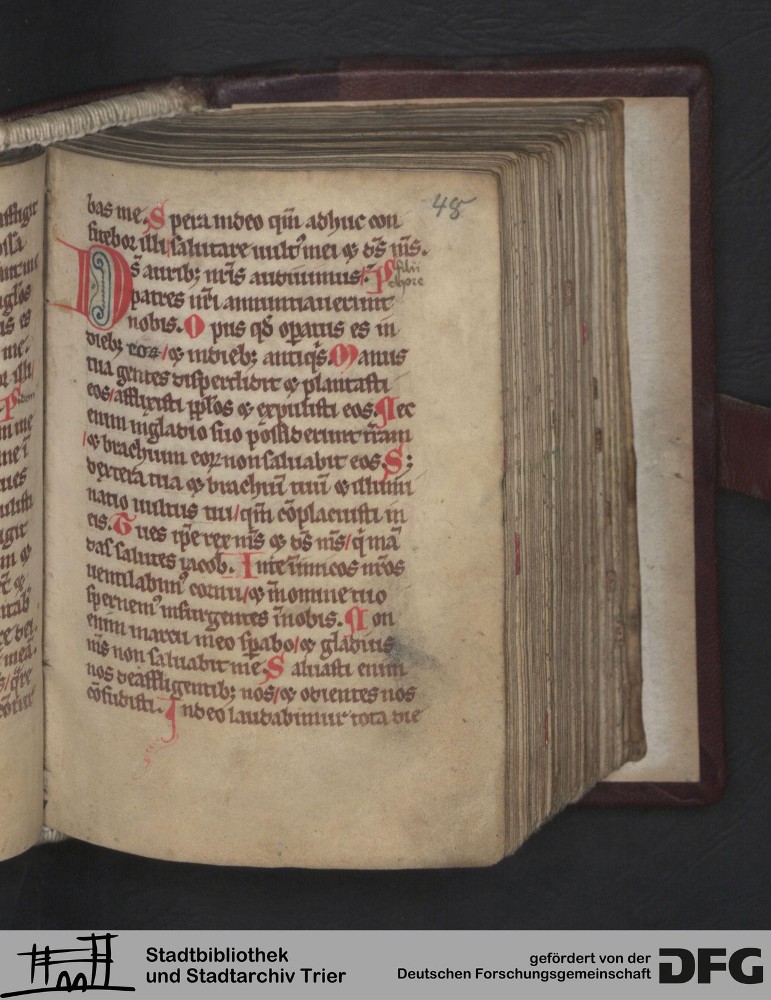 48
bas me. Spera indeo qm̄ adhuc con
fitebor illi / salutare uult᷒ mei ⁊ ds̄ ms̄.
Ds̄ aurib; nr̄is audiuimus /. P̄s filii chore
patres nr̄i annuntiauerunt
nobis. Opus qd̄ op̄atus es in
dieb; eoꝝ / ⁊ indieb; antiqs̄. Manus
tua gentes disperdidit ⁊ plantasti
eos / afflixisti pp̄los ⁊ expulisti eos. Nec
enim ingladio suo possiderunt tr̄am
/ ⁊ brachium eoꝝ non saluabit eos. S;
dextera tua ⁊ brachiū tuū ⁊ illumi
natio uultus tui / qm̄ cōplacuisti in
eis. Tu es ip̄e rex m̄s ⁊ ds̄ ms̄ / q̄ man̄
das salutes iacob. Inte īimicos nr̄os
uentilabim᷒ cornu / ⁊ īnomine tuo
spernem᷒ insurgentes īnobis. Non
enim inarcu meo sp̄abo / ⁊ gladius
m̄s non saluabit me. Saluasti enim
nos deaffligentib; nos / ⁊ odientes nos
cōfudisti. Indeo laudabimur tota die
Stadtbibliothek
und Stadtarchiv Trier
gefördert von der
Deutschen Forschungsgemeinschaft
DFG